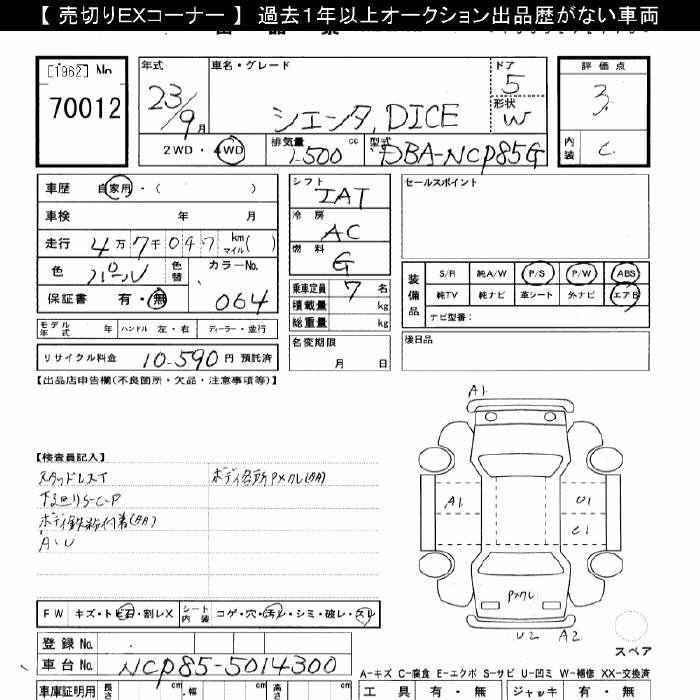 【 売切りEXコーナー 】 過去１年以上オークション出品歴がない車両
[1962] No
70012
年式
23/9月
車名・グレード
シエンタ, DICE
ドア
5
形状
W
評価点
3.
内装
C
2WD・4WD
排気量 1500 cc
型式 DBA-NCP85G
車歴 自家用・( )
車検 年 月
走行 4万7千047 km マイル( )
色 パール 色替 カラーNo. 064
保証書 有・無
モデル年式 年 ハンドル 左・右 ディーラー・並行
リサイクル料金 10,590 円 預託済
シフト
IAT
冷房
AC
燃料
G
乗車定員 7 名
積載量 kg
総重量 kg
名変期限
月 日
セールスポイント
装備品
S/R 純A/W P/S P/W ABS
純TV 純ナビ 革シート 外ナビ エアB
ナビ型番：
後日品
【出品店申告欄(不良箇所・欠品・注意事項等)】
【検査員記入】
スタッドレスT
下廻りS-C-P
ボディ鉄粉付着(多有)
A・U
ボディ各所Pメクレ(多有)
A1.
A1
U1
C1
Pメクレ
U2 A2
スペア
FW キズ・トビ石・割レX シート内装 コゲ・穴・汚レ・シミ・破レ・スレ
登録 No.
車台 No. NCP85-5014300
車庫証明用 長さ cm 幅 cm 高さ cm
A-キズ C-腐食 E-エクボ S-サビ U-凹ミ W-補修 XX-交換済
工具 有・無 ジャッキ 有・無